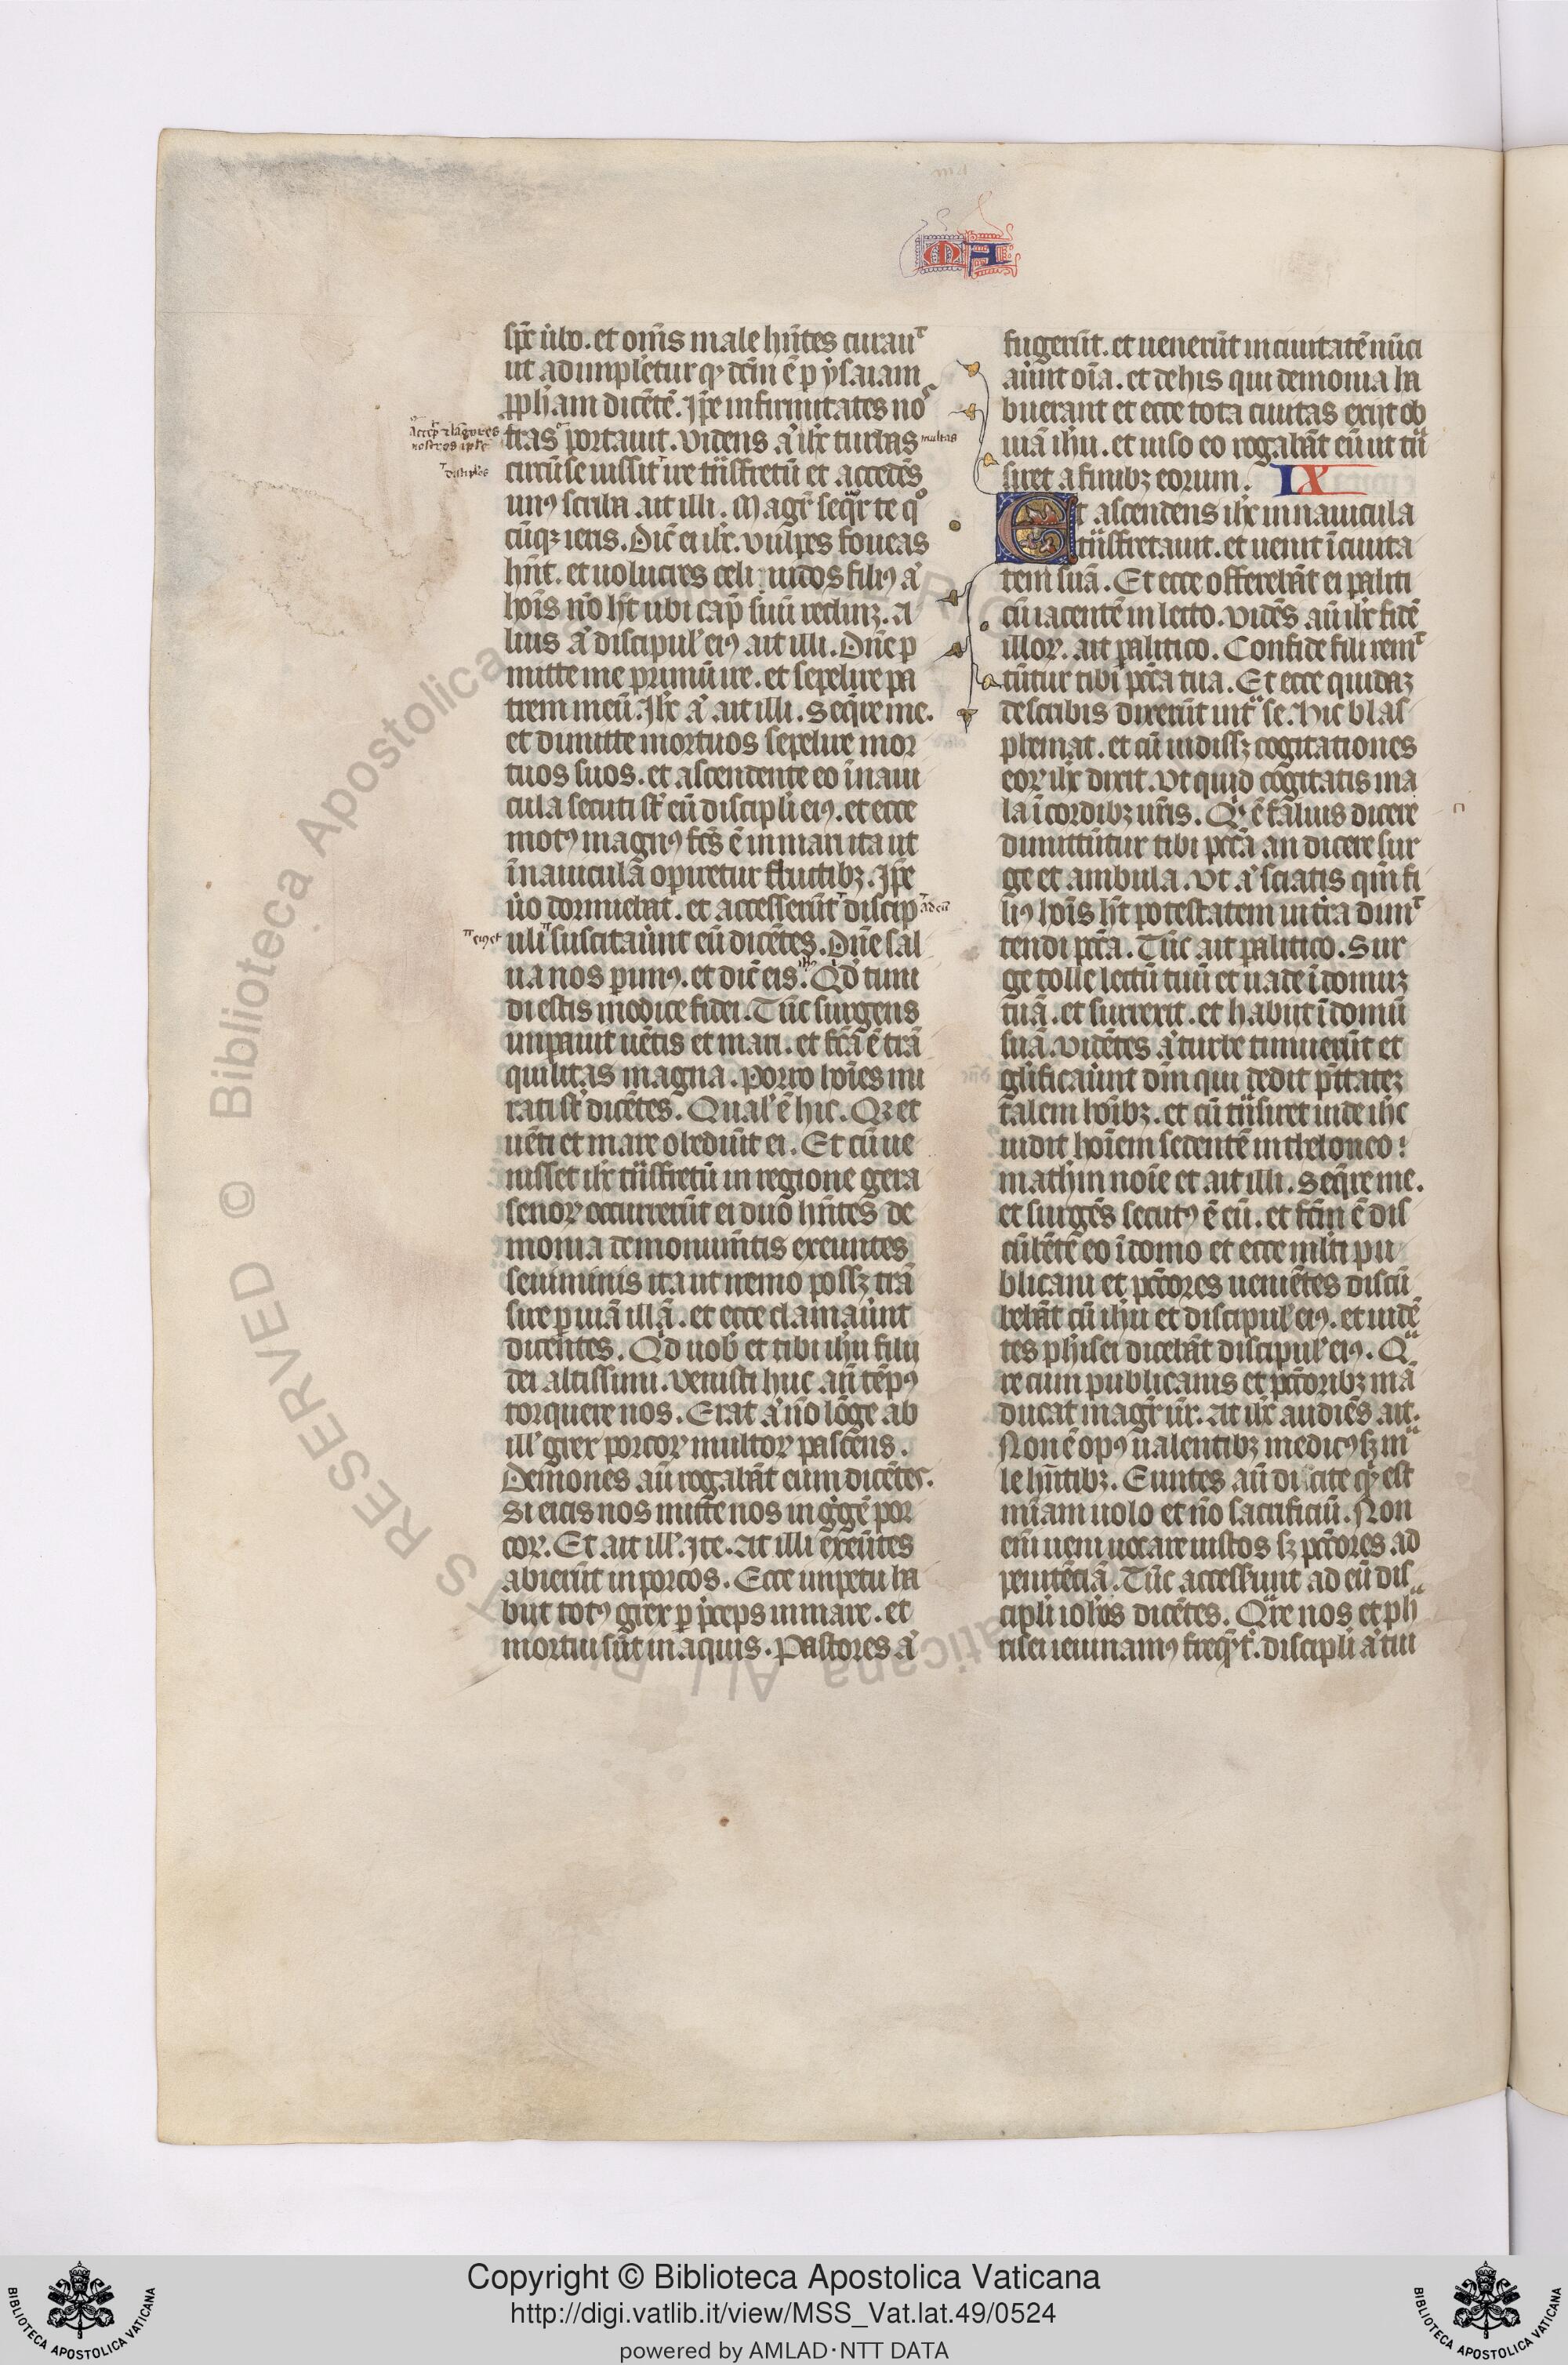 MA
sp̄c ūbo. et om̄s male hn̄tes curauͭ
ut adimpletur qͩ dc̄m ē p ysaiam
ꝓph̄am dicētē. Ip̄e infirmitates noͨ
accep̄ ⁊ lāguores
nostros ip̄e
tras portauit. Videns aͧ ih̄c turbas
multas
discipl̄os
circū se iussit ire trāsfretū et accedēs
unꝰ scriba ait illi. Magr̄ sequar te qͦ
cūqꝫ ieris. Dic̄ ei ih̄c. Vulpes foueas
hn̄t. et uolucres celi nidos filiꝰ aͧ
hoīs nō hꝫ ubi cap̄ suū reclinꝫ. a
lius aͧ discipul' eiꝰ ait illi. Dn̄e p
mitte me primū ire. et sepelire pa
trem meū. Ih̄c aͧ ait illi. Seq̄re me.
et dimitte mortuos sepelire mor
tuos suos. et ascendente eo ī naui
cula secuti st̄ eū discipli eiꝰ. et ecce
motꝰ magnꝰ fc̄s ē in mari ita ut
ī nauiculā opiretur fluctibꝫ. Ip̄e
ūo dormiebat. et accesserūt discip
ad eū
eiꝰ et
uli suscitaūnt eū dicētes. Dn̄e sal
ua nos perimꝰ. et dic̄ eis. Qͩ timi
di estis modice fidei. Tūc surgens
impauit uētis et mari. et fc̄a ē trā
quilitas magna. Porro hoīes mi
rati st̄ dicētes. Qual' ē hic. Qꝫ et
uēti et mare obediūt ei. Et cū ue
nisset ih̄c trāsfretū in regione gera
senoꝝ occurrerūt ei duo hn̄tes de
monia de monum̄tis exeuntes
seui nimis ita ut nemo possꝫ trā
sire p uiā illā. et ecce clamaūnt
dicentes. Qͩ nob̄ et tibi ih̄u fili
dei altissimi. Venisti huc an̄ tēpꝰ
torquere nos. Erat aͧ nō lōge ab
ill' grex porcoꝝ multoꝝ pascens.
Demones aū rogabāt eum dicētes.
Si eicis nos mitte nos in gͤgē por
coꝝ. Et ait ill'. Ite. At illi exeūtes
abierūt in porcos. Ecce impetu ha
biit totꝰ grex p p̄ceps in mare. et
mortui sūt in aquis. Pastores aͧ
fugerūt. et uenerūt in ciuitatē nūci
aūnt oīa. et de his qui demonia ha
buerant et ecce tota ciuitas exijt ob
uiā ih̄u. et uiso eo rogabāt eū ut trā
siret a finibꝫ eorum. IX
Et ascendens ih̄c in nauicula
trāsfretauit. et uenit ī ciuita
tem suā. Et ecce offerebāt ei paliti
cū iacentē in lecto. Vidēs aū ih̄c fidē
illoꝝ. ait palitico. Confide fili remͭ
tūtur tibi pc̄ca tua. Et ecce quidaꝫ
de scribis dixerūt int̄ se. Hic blas
phemat. et cū uidissꝫ cogitationes
eoꝝ ih̄c dixit. Ut quid cogitatis ma
la ī cordibꝫ ur̄is. Qͥ ē facilius dicere
dimittūtur tibi pc̄ca an dicere sur
ge et ambula. Ut aͧ sciatis qm̄ fi
liꝰ hoīs hꝫ potestatem in t̄ra dimͭ
tendi pc̄ca. Tūc ait palitico. Sur
ge tolle lectū tuū et uade ī domuꝫ
tuā. et surrexit. et habiit ī domū
suā. Vidētes aͧ turbe timuerūt et
gl̄ificaūnt dm̄ qui dedit p̄ttateꝫ
talem hoībꝫ. et cū trāsiret inde ih̄c
uidit hoīem sedentē in theloneo:
math̄m noīe et ait illi. Seq̄re me.
et surgēs secutꝰ ē eū. et fc̄m ē dis
cūbētē eo ī domo et ecce ml̄ti pu
blicani et pc̄cores ueniētes discū
bebāt cū ih̄u et discipul' eiꝰ. et uidē
tes ph̄isei dicebāt discipul' eiꝰ. Qͣ
re cum publicanis et pc̄coribꝫ mā
ducat magr̄ ur̄. At ih̄c audiēs ait.
Non ē opꝰ ualentibꝫ medicꝰ sꝫ mͣ
le hn̄tibꝫ. Euntes aū discite qͩ est
mi̅am uolo et nō sacrificiū. Non
eni̅ ueni uocare iustos sꝫ pc̄cores. ad
penitēciā. Tūc accesserunt ad eū dis
cipli ioh̄is dicētes. Qͣre nos et phͣ
risei ieiunamꝰ freqn̄t̄. discipli aͧ tui
Copyright © Biblioteca Apostolica Vaticana
http://digi.vatlib.it/view/MSS_Vat.lat.49/0524
powered by AMLAD·NTT DATA
BIBLIOTECA APOSTOLICA VATICANA
BIBLIOTECA APOSTOLICA VATICANA